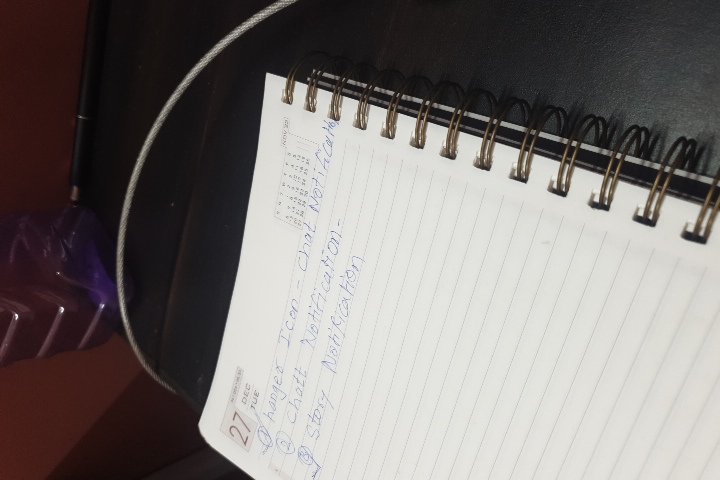 27
DEC
TUE
NOV 22
① hanger Icon - Chat Notification
② Chatt Notification-
③ Story Notification